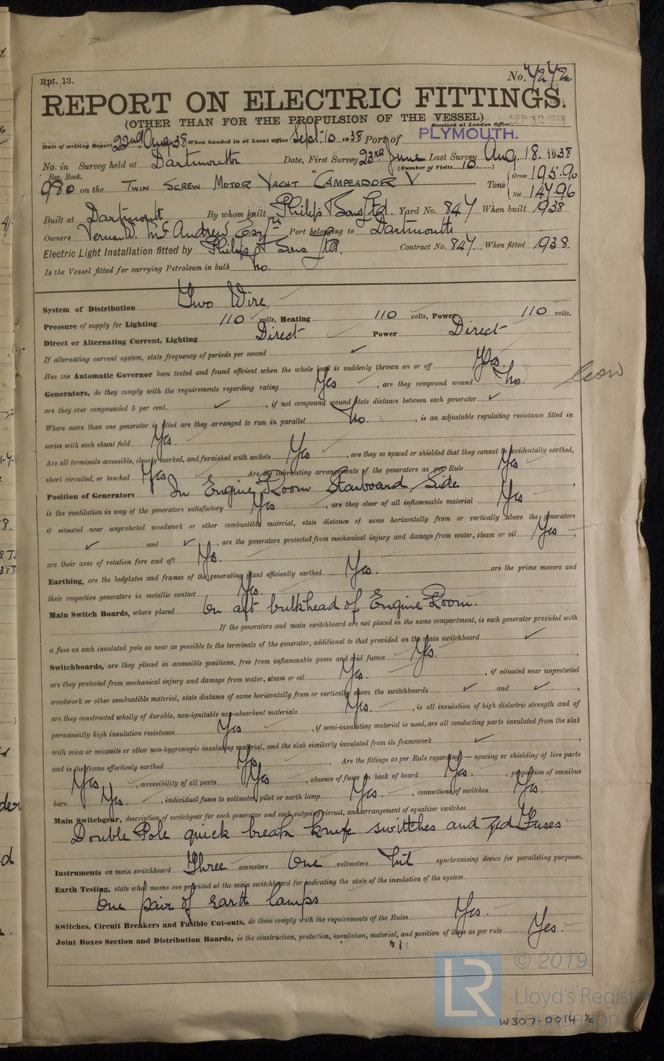 Rpt. 13.
No. 4242
REPORT ON ELECTRIC FITTINGS.
(OTHER THAN FOR THE PROPULSION OF THE VESSEL)
Received at London Office SEP 12 1938
Date of writing Report 22nd Aug 38 When handed in at Local Office Sept. 10 1938 Port of PLYMOUTH.
No. in Survey held at Dartmouth Date, First Survey 23rd June Last Survey Aug. 18. 1938
Reg. Book. (Number of Visits 10)
980 on the TWIN SCREW MOTOR YACHT "CAMPEADOR V Tons Gross 195.90 Net 147.96
Built at Dartmouth By whom built Philip & Sons Ltd Yard No. 847 When built 1938
Owners Vernon W. McAndrew Esqr Port belonging to Dartmouth
Electric Light Installation fitted by Philip & Sons Ltd. Contract No. 847. When fitted 1938.
Is the Vessel fitted for carrying Petroleum in bulk No.
System of Distribution Two Wire
Pressure of supply for Lighting 110 volts, Heating 110 volts, Power 110 volts.
Direct or Alternating Current, Lighting Direct Power Direct
If alternating current system, state frequency of periods per second ✓
Has the Automatic Governor been tested and found efficient when the whole load is suddenly thrown on or off Yes
Generators, do they comply with the requirements regarding rating Yes, are they compound wound No.
are they over compounded 5 per cent. ✓, if not compound wound state distance between each generator ✓
Where more than one generator is fitted are they arranged to run in parallel No., is an adjustable regulating resistance fitted in
series with each shunt field Yes.
Are all terminals accessible, clearly marked, and furnished with sockets Yes, are they so spaced or shielded that they cannot be accidentally earthed,
short circuited, or touched Yes Are the lubricating arrangements of the generators as per Rule Yes
Position of Generators In Engine Room Starboard Side
is the ventilation in way of the generators satisfactory Yes, are they clear of all inflammable material Yes,
if situated near unprotected woodwork or other combustible material, state distance of same horizontally from or vertically above the generators
✓ and ✓, are the generators protected from mechanical injury and damage from water, steam or oil Yes,
are their axes of rotation fore and aft Yes.
Earthing, are the bedplates and frames of the generating plant efficiently earthed Yes. are the prime movers and
their respective generators in metallic contact Yes.
Main Switch Boards, where placed On aft bulkhead of Engine Room.
If the generators and main switchboard are not placed in the same compartment, is each generator provided with
a fuse on each insulated pole as near as possible to the terminals of the generator, additional to that provided on the main switchboard ✓
Switchboards, are they placed in accessible positions, free from inflammable gases and acid fumes Yes.
are they protected from mechanical injury and damage from water, steam or oil Yes., if situated near unprotected
woodwork or other combustible material, state distance of same horizontally from or vertically above the switchboards ✓ and ✓,
are they constructed wholly of durable, non-ignitable non-absorbent materials Yes., is all insulation of high dielectric strength and of
permanently high insulation resistance Yes, if semi-insulating material is used, are all conducting parts insulated from the slab
with mica or micanite or other non-hygroscopic insulating material, and the slab similarly insulated from its framework ✓,
and is the frame effectively earthed Yes. Are the fittings as per Rule regarding:— spacing or shielding of live parts
Yes, accessibility of all parts Yes, absence of fuses on back of board Yes., proportion of omnibus
bars Yes., individual fuses to voltmeter, pilot or earth lamp Yes., connections of switches Yes.
Main Switchgear, description of switchgear for each generator and each outgoing circuit, and arrangement of equalizer switches
Double Pole quick break knife switches and Zed Fuses
Instruments on main switchboard Three ammeters One voltmeters Nil synchronising device for paralleling purposes.
Earth Testing, state what means are provided at the main switchboard for indicating the state of the insulation of the system
One pair of earth lamps
Switches, Circuit Breakers and Fusible Cut-outs, do these comply with the requirements of the Rules Yes.
Joint Boxes Section and Distribution Boards, is the construction, protection, insulation, material, and position of these as per rule Yes.
© 2019
LR
Lloyd's Register
Foundation
W307-0014 ½